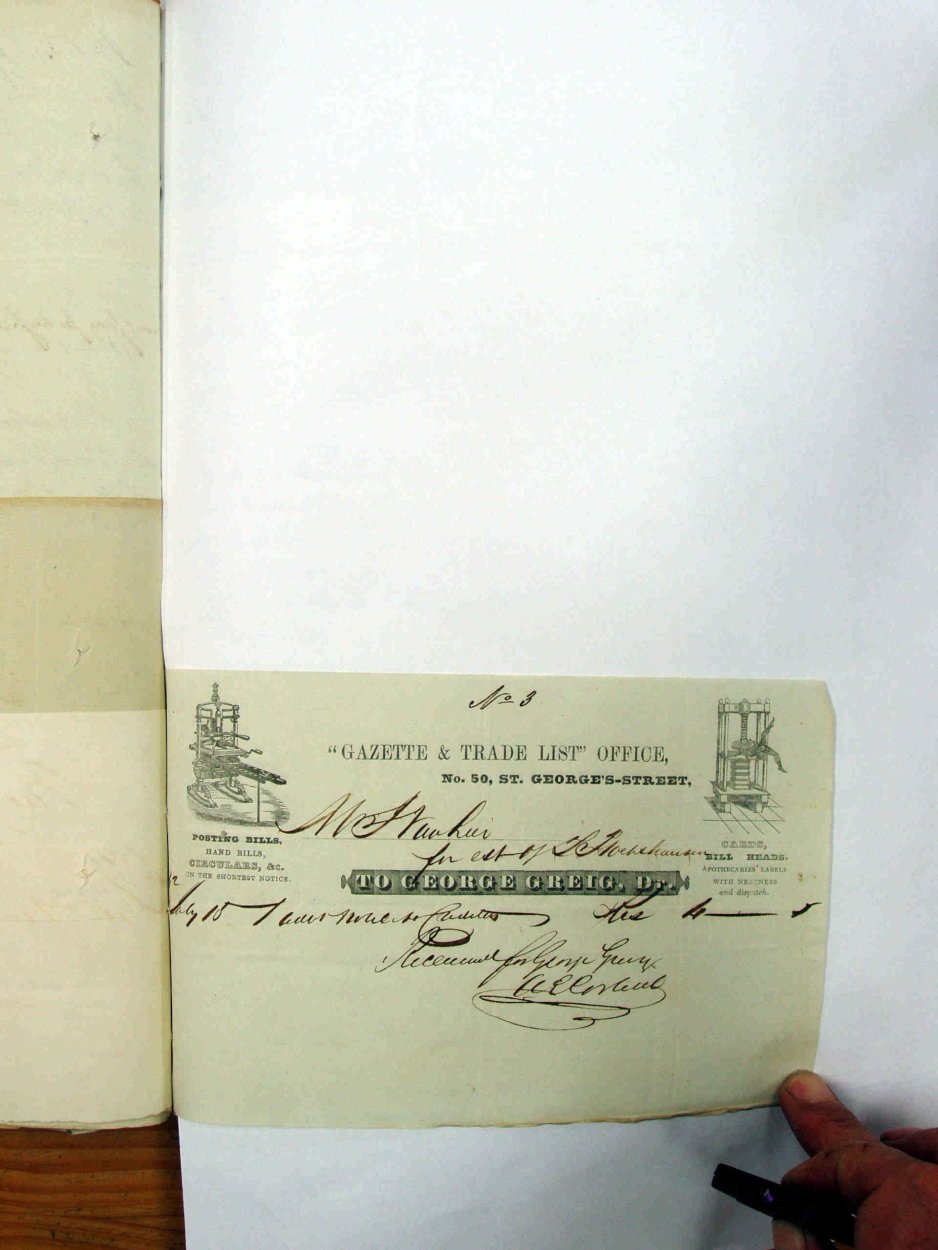 No 3
"GAZETTE & TRADE LIST" OFFICE,
No. 50, ST. GEORGE'S-STREET,
POSTING BILLS,
HAND BILLS,
CIRCULARS, &c.
ON THE SHORTEST NOTICE.
CARDS,
BILL HEADS,
APOTHECARIES' LABELS
WITH NEATNESS
and dispatch.
Mr
for est of
TO GEORGE GREIG, Dr.
July 18 1 advt notice to Creditors Rds 4
Received for George Greig